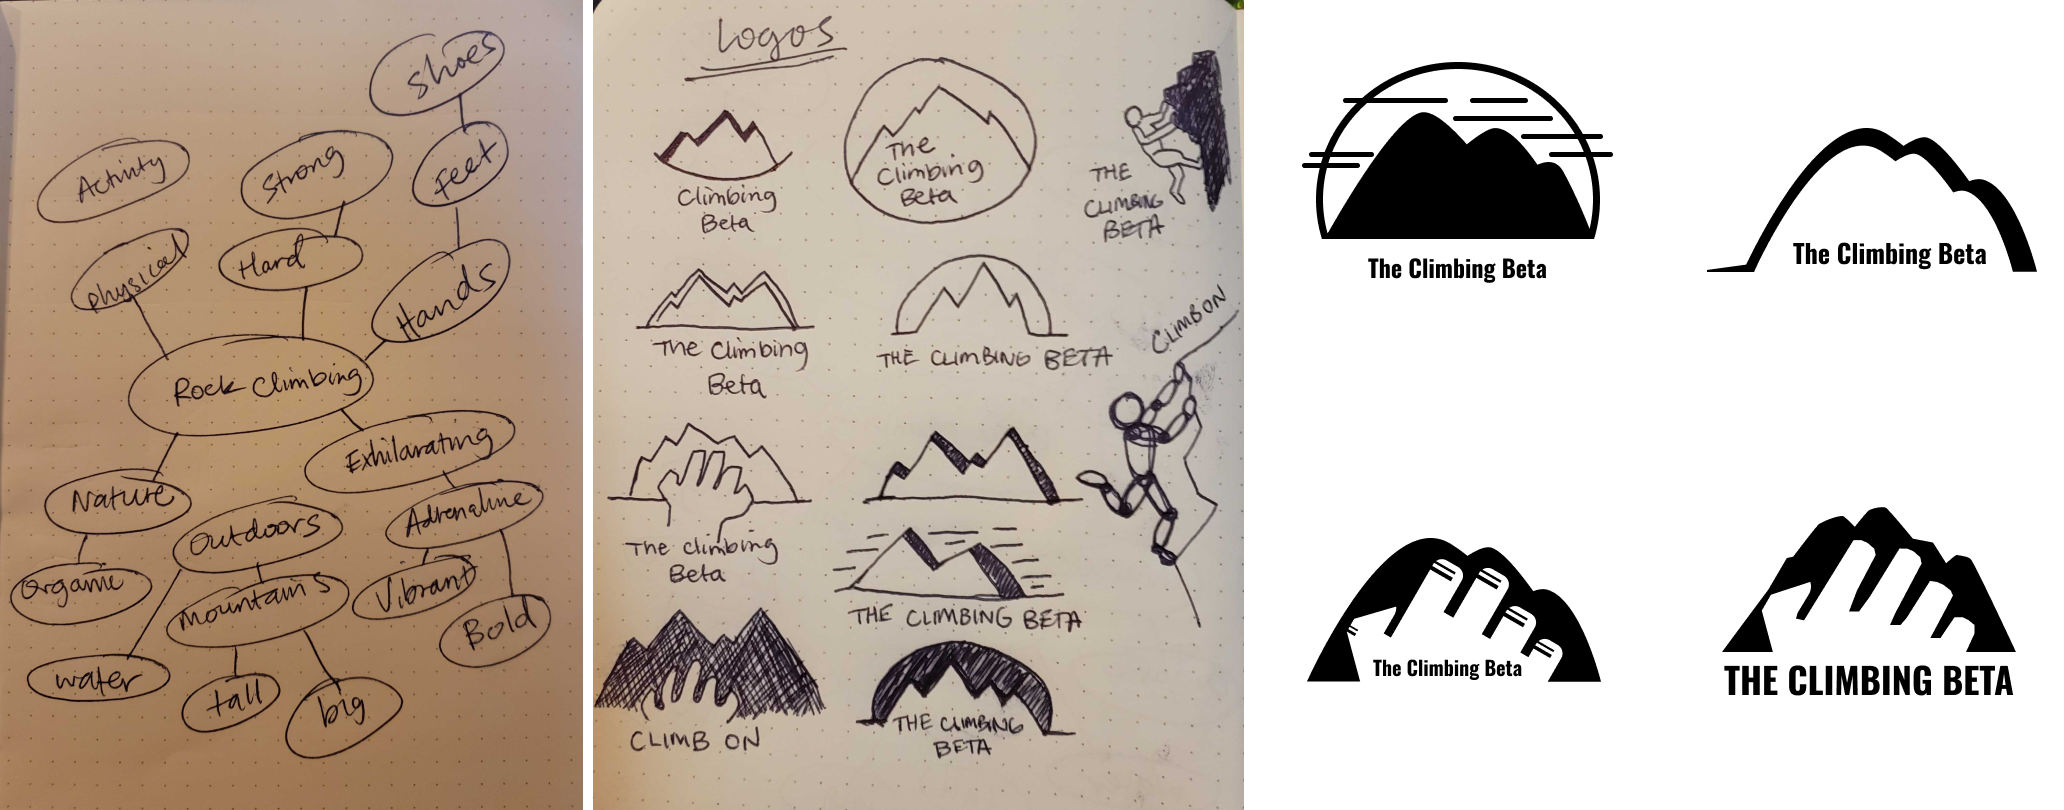 Shoes
Activity
Strong
Feet
physical
Hard
Hands
Rock Climbing
Exhilarating
Nature
Adrenaline
Outdoors
Organic
Mountains
Vibrant
Bold
water
tall
big
Logos
Climbing
Beta
The
Climbing
Beta
THE
CLIMBING
BETA
The Climbing
Beta
THE CLIMBING BETA
CLIMB ON
The climbing
Beta
THE CLIMBING BETA
CLIMB ON
THE CLIMBING
BETA
The Climbing Beta
The Climbing Beta
The Climbing Beta
THE CLIMBING BETA